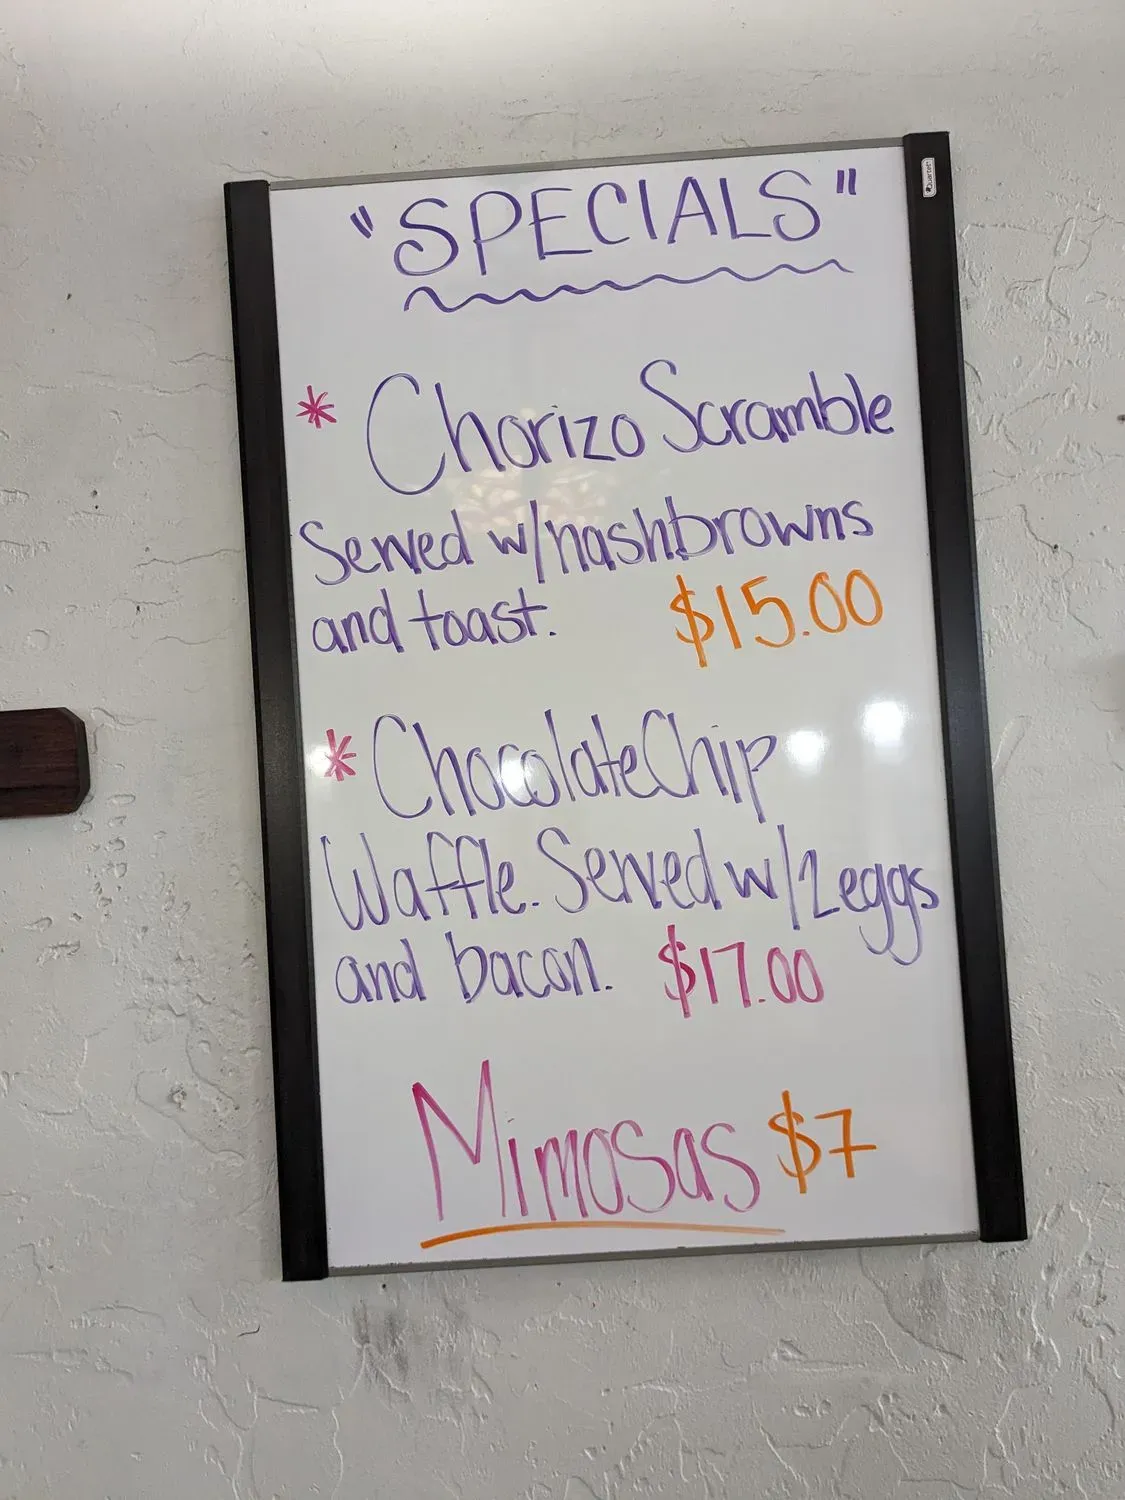 "SPECIALS"
Quartet
* Chorizo Scramble
Served w/hashbrowns
and toast. $15.00
* Chocolate Chip
Waffle. Served w/2 eggs
and bacon. $17.00
Mimosas $7